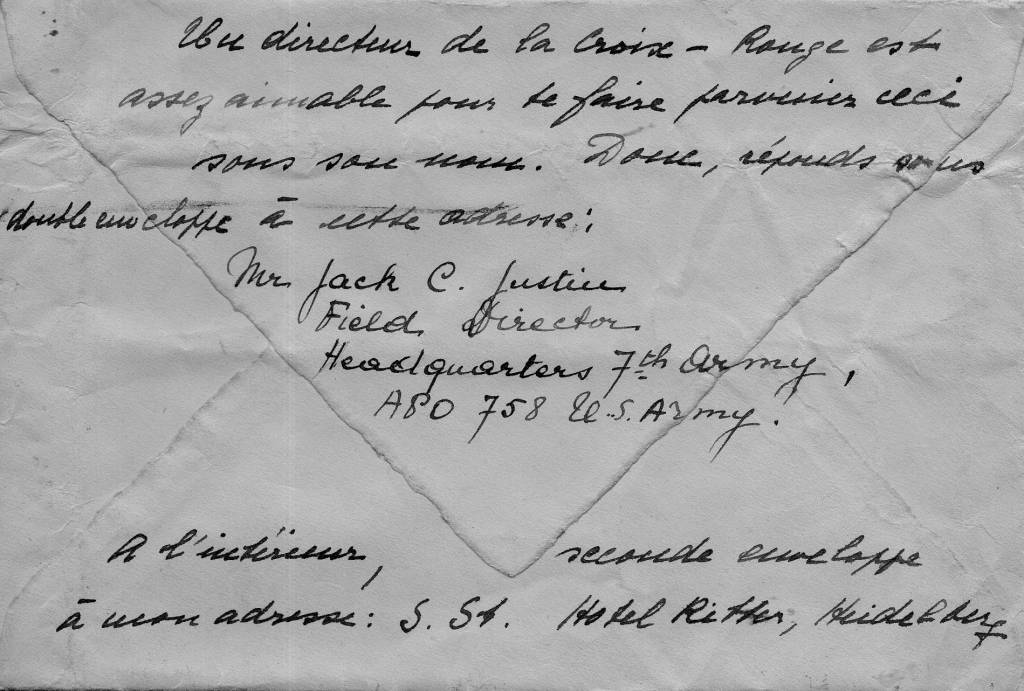 Un directeur de la Croix-Rouge est
assez aimable pour te faire parvenir ceci
sous son nom. Donc, réponds sous
double enveloppe à cette adresse:
Mr Jack C. Justin
Field Director
Headquarters 7th Army,
APO 758 U.S. Army.
A l'intérieur, seconde enveloppe
à mon adresse: S. St. Hotel Ritter, Heidelberg